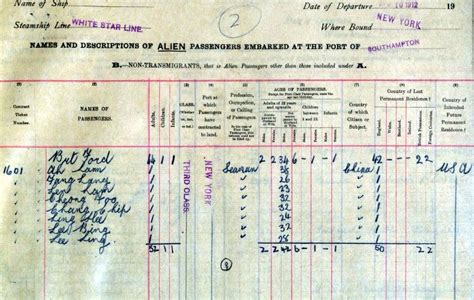 Name of Ship
Date of Departure 10 1912 19
Steamship Line WHITE STAR LINE
2
Where Bound NEW YORK
NAMES AND DESCRIPTIONS OF ALIEN PASSENGERS EMBARKED AT THE PORT OF SOUTHAMPTON
B.—NON-TRANSMIGRANTS, that is Alien Passengers other than those included under A.
Contract Ticket Number.
NAMES OF PASSENGERS.
Adults.
Children.
Infants.
CLASS.
Port at which Passengers have contracted to land.
Profession, Occupation, or Calling of Passengers.
AGES OF PASSENGERS.
Adults of 12 years and upwards.
Children between 1 and 12.
Infants.
Country of which Citizen or Subject.
Country of Last Permanent Residence
Country of Intended
Brt Ford 41 11 2 2 34 6 - 1 - 1 42 - - 2 2
1601 Ah Lam 1 THIRD CLASS NEW YORK Seaman 38 China 1 USA
Fang Lang 1 26 1
Len Lam 1 32 1
Cheong Foo 1 32 1
Chang Chip 1 32 1
Ling Hee 1 24 1
Lee Bing 1 32 1
Lee Ling 1 28 1
52 11 2 2 42 6 - 1 - 1 50 2 2